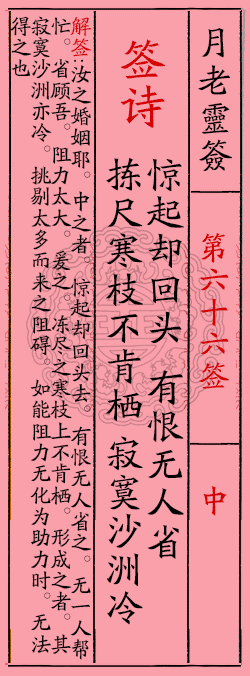 月老靈簽
第六十六签
中
签诗
惊起却回头 有恨无人省
拣尺寒枝不肯栖 寂寞沙洲冷
解签:汝之婚姻耶。中之者。惊起却回头去。有恨无人省之。无一人帮
忙。省顾吾。阻力太大。爰之。冻尽之寒枝上不肯栖。形成之者。其
寂寞沙洲亦冷。挑剔太多而来之阻碍。如能阻力无化为助力时。无法
得之也